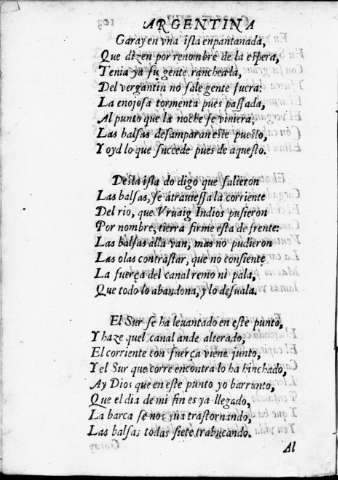 ARGENTINA
Garay en vna isla enpantanada,
Que dizen por renombre de la espera,
Tenia ya su gente rancheada,
Del vergantin no sale gente fuera:
La enojosa tormenta pues passada,
Al punto que la noche se viniera,
Las balsas desamparan este puesto,
Y oyd lo que succede pues de aquesto.
Desta isla do digo que salieron
Las balsas, se atrauiessa la corriente
Del rio, que Vruaig Indios pusieron
Por nombre, tierra firme esta de frente:
Las balsas alla van, mas no pudieron
Las olas contrastar, que no consiente
La fuerça del canal remo ni pala,
Que todo lo abandona, y lo desuala.
El Sur se ha leuantado en este punto,
Y haze quel canal ande alterado,
El corriente con fuerça viene junto,
Y el Sur que corre encontra lo ha hinchado,
Ay Dios que en este punto yo barrunto,
Que el dia de mi fin es ya llegado,
La barca se nos yua trastornando,
Las balsas todas siete trabucando.
Al